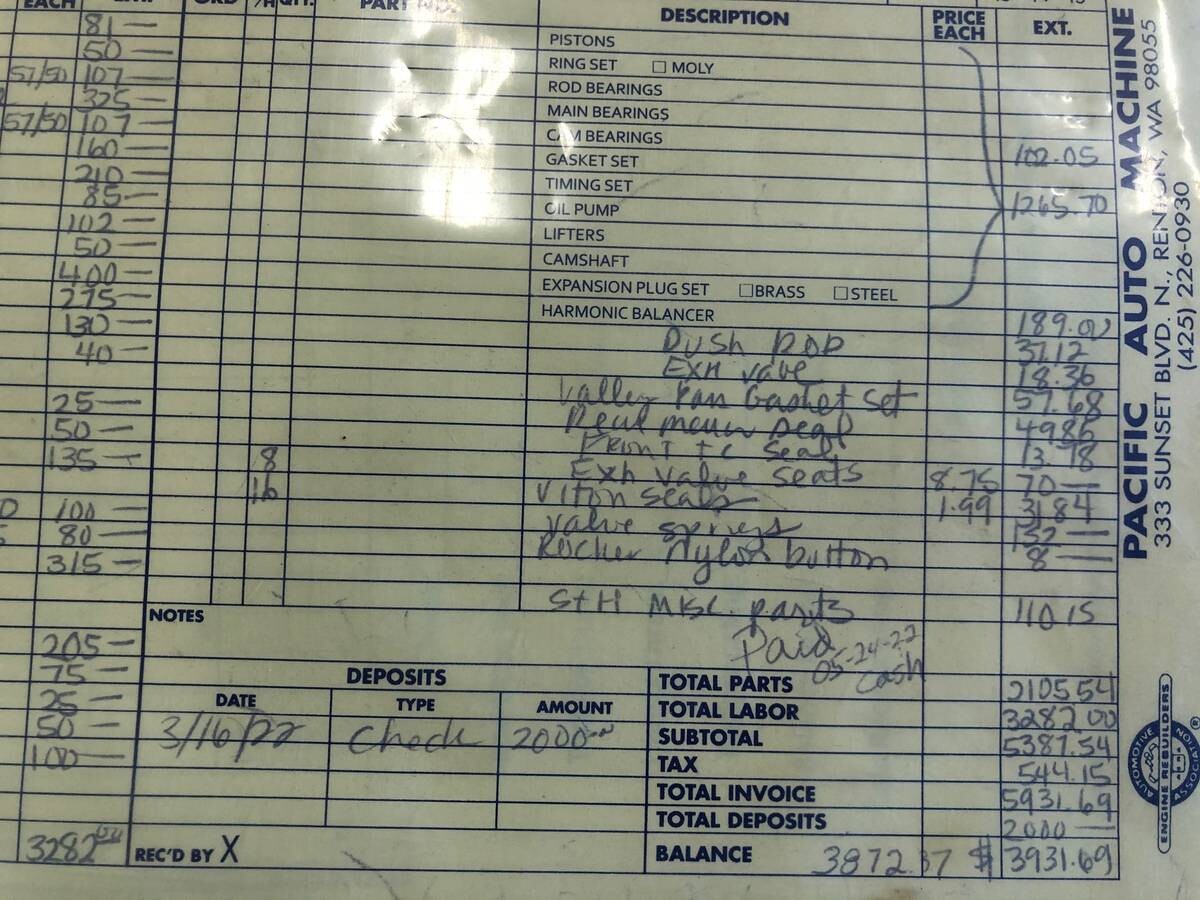 EACH
QTY.
PART NO.
DESCRIPTION
PRICE EACH
EXT.
81—
50—
57/50 107—
325—
57/50 107—
160—
210—
85—
102—
50—
400—
275—
130—
40—
25—
50—
135—
100—
80—
315—
205—
75—
25—
50—
100—
3282
PISTONS
RING SET □ MOLY
ROD BEARINGS
MAIN BEARINGS
CAM BEARINGS
GASKET SET 102.05
TIMING SET
OIL PUMP 1265.70
LIFTERS
CAMSHAFT
EXPANSION PLUG SET □ BRASS □ STEEL
HARMONIC BALANCER 189.00
Push Rod 37.12
Exh valve 18.36
Valley Pan Gasket Set 57.68
Rear main seal 49.86
Front tc seal 13.78
8 Exh valve seats 8.75 70—
16 Viton seals 1.99 31.84
valve springs 152—
Rocker Nylon button 8—
S+H Misc. parts 110.15
NOTES
Paid
05-24-22
cash
DEPOSITS
DATE TYPE AMOUNT
3/16/22 Check 2000
TOTAL PARTS 2105.54
TOTAL LABOR 3282.00
SUBTOTAL 5387.54
TAX 544.15
TOTAL INVOICE 5931.69
TOTAL DEPOSITS 2000—
BALANCE 3872.37 $ 3931.69
REC'D BY X
PACIFIC AUTO MACHINE
333 SUNSET BLVD. N., RENTON, WA 98055
(425) 226-0930
AUTOMOTIVE
ENGINE REBUILDERS